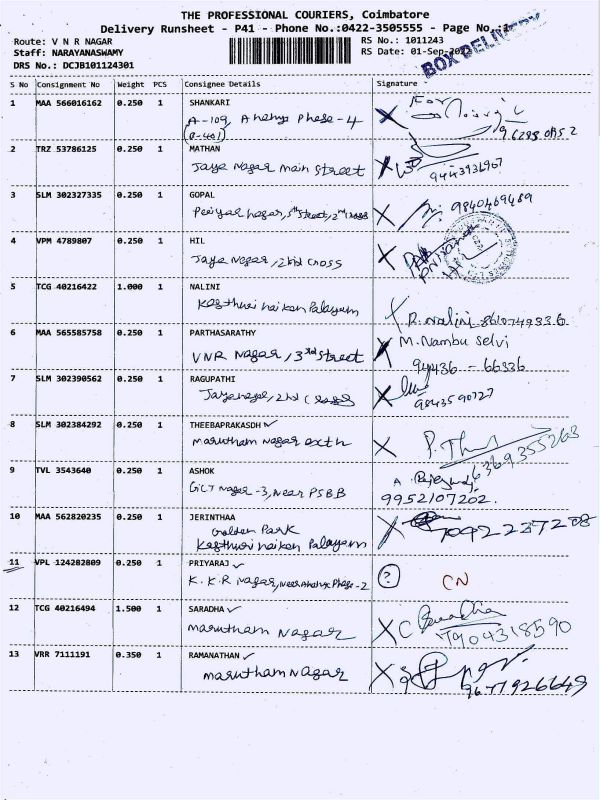 THE PROFESSIONAL COURIERS, Coimbatore
Delivery Runsheet - P41 - Phone No.:0422-3505555 - Page No.:1
Route: V N R NAGAR RS No.: 1011243
Staff: NARAYANASWAMY RS Date: 01-Sep-2022
DRS No.: DCJB101124301
BOX DELIVERY
S No Consignment No Weight PCS Consignee Details Signature
1 MAA 566016162 0.250 1 SHANKARI For
A-109, Phase-4
2 TRZ 53786125 0.250 1 MATHAN
Jaya Nagar main street 9443936967
3 SLM 302327335 0.250 1 GOPAL 9840469489
Periyar nagar, 5th street, 2nd cross
4 VPM 4789807 0.250 1 HIL
Jaya Nagar, 2nd cross
5 TCG 40216422 1.000 1 NALINI
Kasthuri naiken Palayam R. Nalini
6 MAA 565585758 0.250 1 PARTHASARATHY M. Nambu Selvi
VNR Nagar, 3rd street 94436 - 66336
7 SLM 302390562 0.250 1 RAGUPATHI
Jaya nagar, 2nd cross 9843590727
8 SLM 302384292 0.250 1 THEEBAPRAKASDH
marutham Nagar extn 6369355263
9 TVL 3543640 0.250 1 ASHOK
GCT Nagar -3, Near PSBB 9952107202.
10 MAA 562820235 0.250 1 JERINTHAA
Golden Park 7092237208
Kasthuri naiken Palayam
11 VPL 124282809 0.250 1 PRIYARAJ ? CN
K.K.R Nagar, Near Phase-2
12 TCG 40216494 1.500 1 SARADHA C Saradha
marutham Nagar 7904318590
13 VRR 7111191 0.350 1 RAMANATHAN
marutham Nagar 9677926649